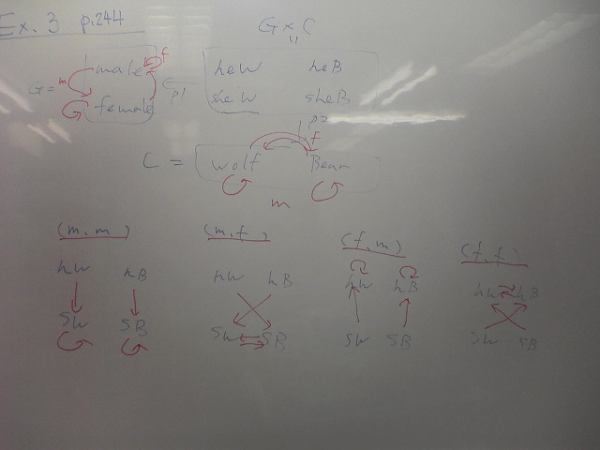 Ex. 3 p.244
G x C
male f
G = m
female
p1
heW heB
sheW sheB
p2
f
C = wolf Bear
m
(m, m) (m, f) (f, m) (f, f)
hW hB hW hB hW hB hW hB
SW SB SW SB SW SB SW SB